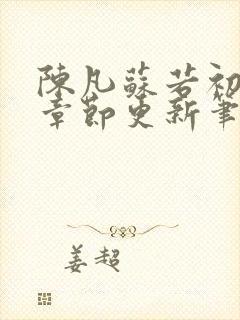 陳凡蘇若初
章節更新筆
姜超